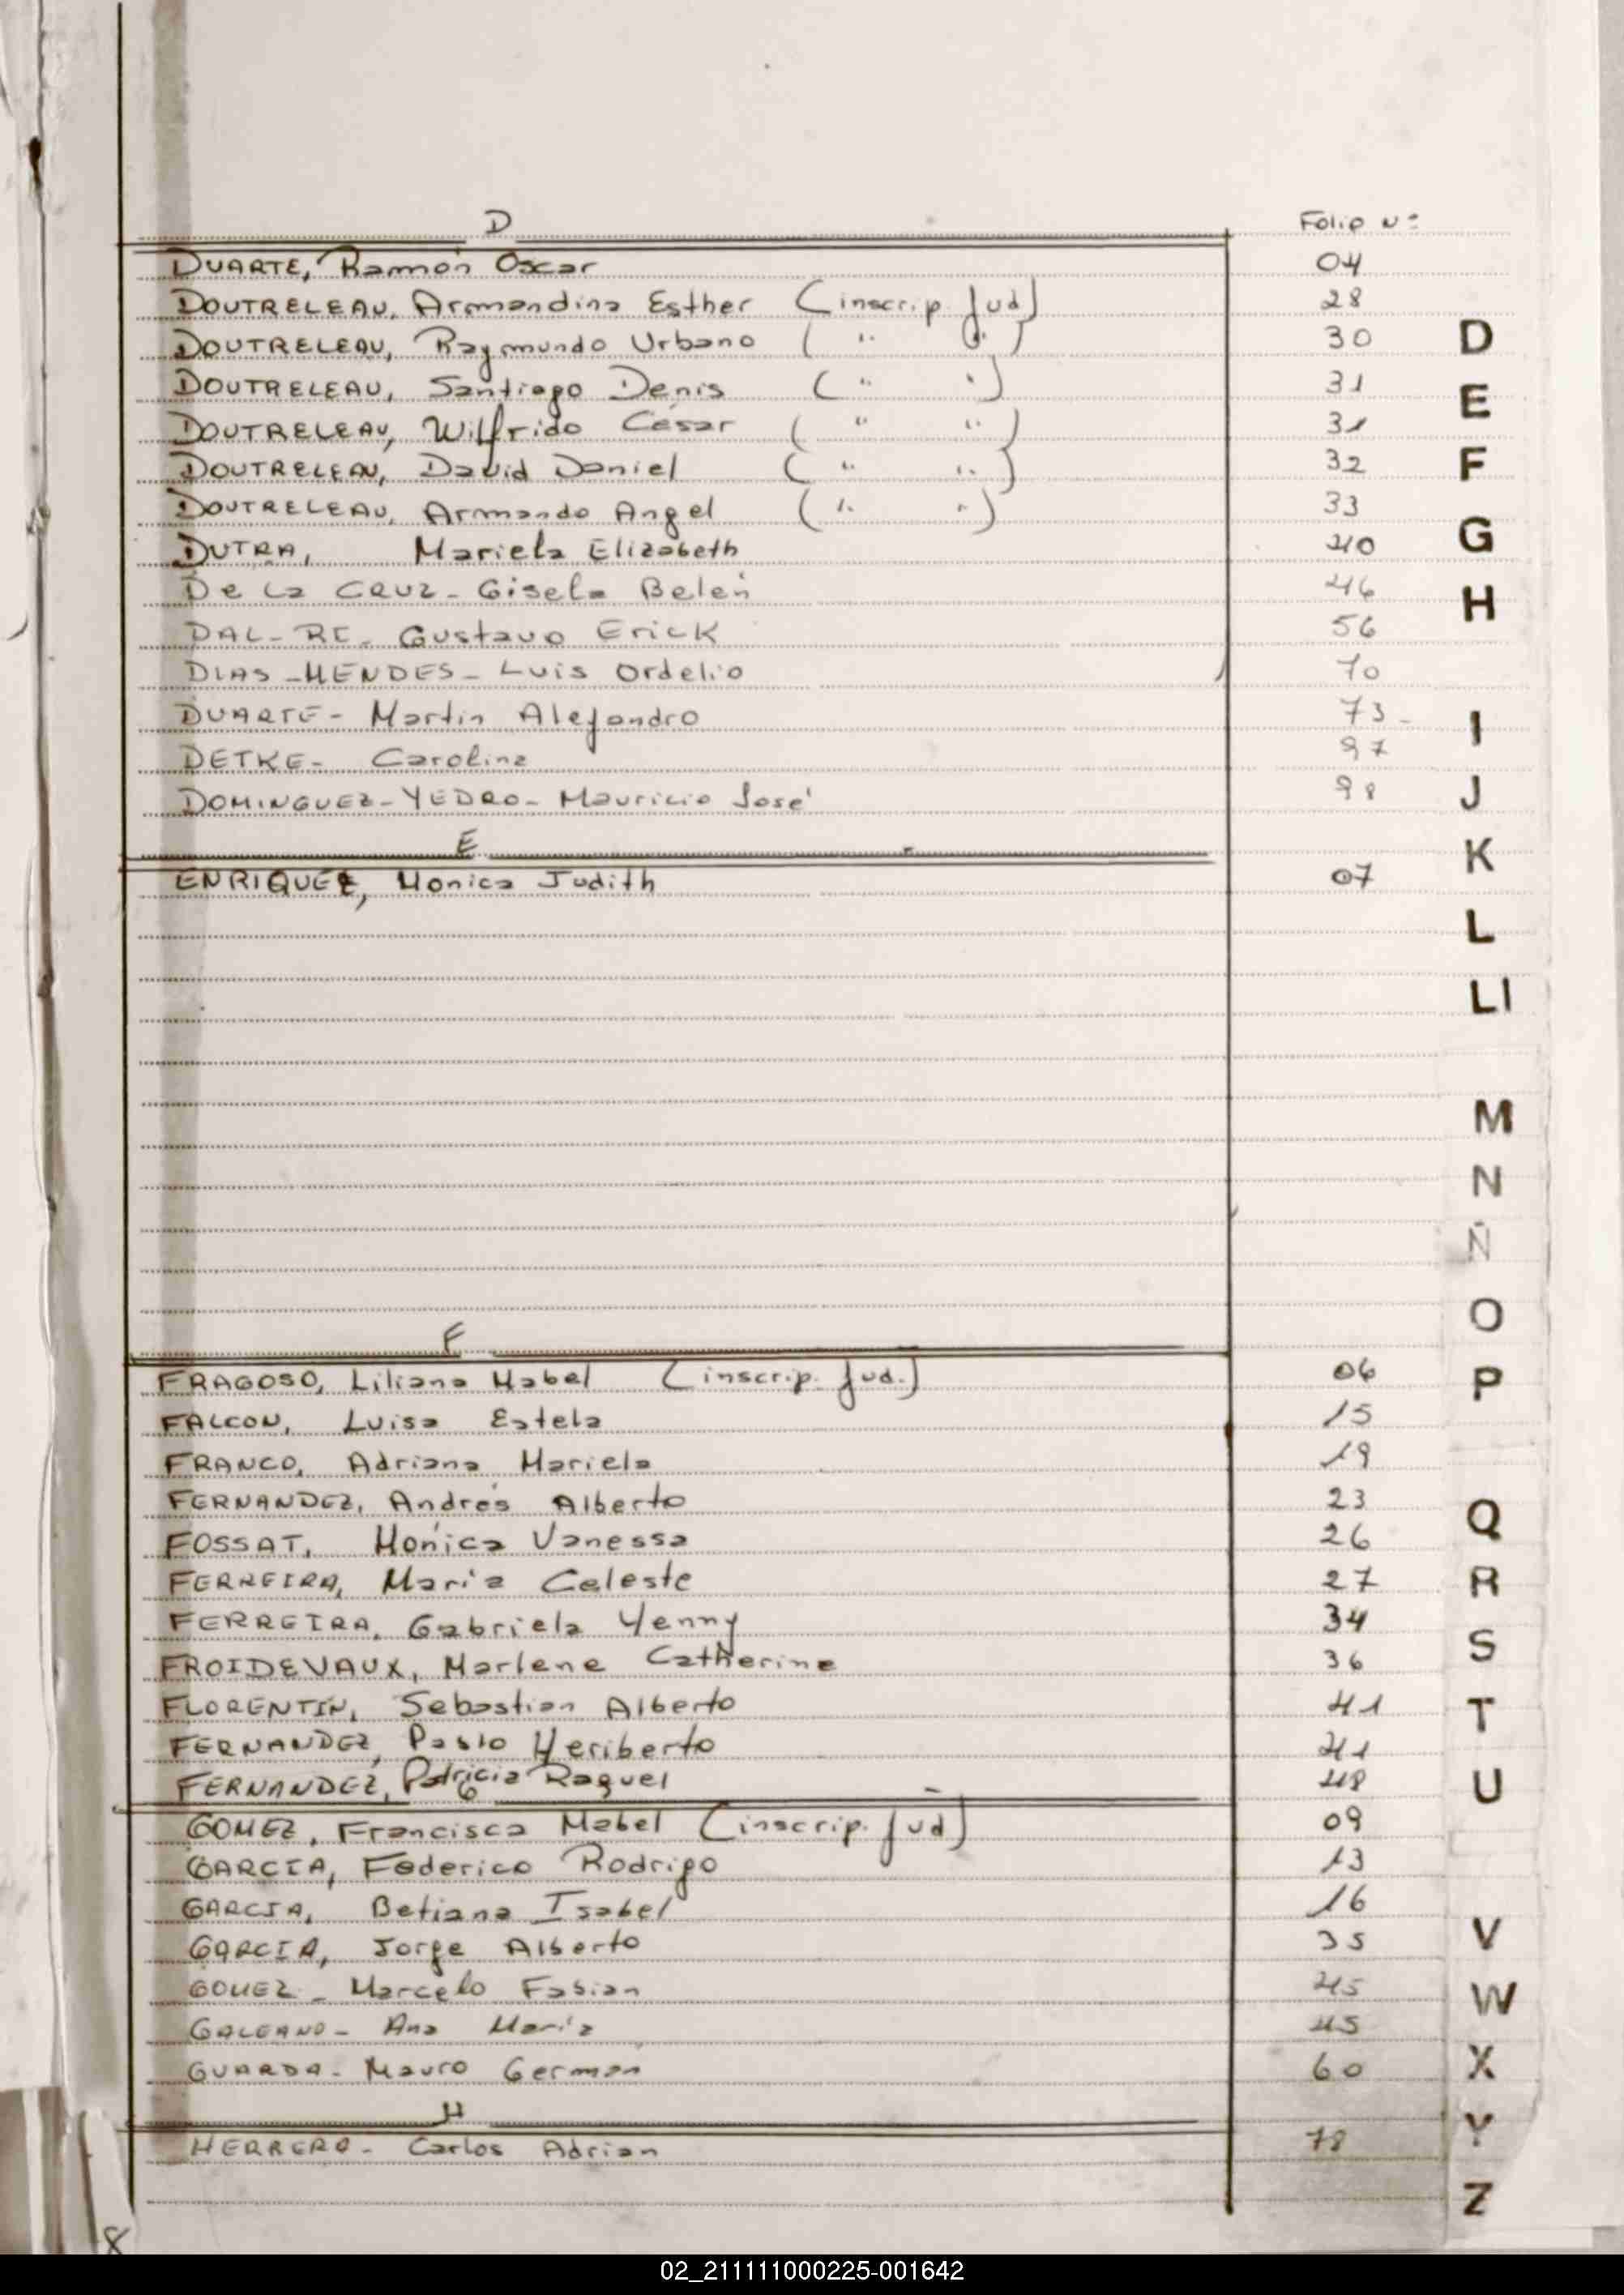 D Folio Nº
DUARTE, Ramón Oscar 04
DOUTRELEAU, Armandina Esther (inscrip. Jud) 28
DOUTRELEAU, Raymundo Urbano ( " " ) 30
DOUTRELEAU, Santiago Denis ( " " ) 31
DOUTRELEAU, Wilfrido César ( " " ) 31
DOUTRELEAU, David Daniel ( " " ) 32
DOUTRELEAU, Armando Angel ( " " ) 33
DUTRA, Mariela Elizabeth 40
De La CRUZ - Gisela Belén 46
DAL-RE - Gustavo Erick 56
DIAS - MENDES - Luis Ordelio 70
DUARTE - Martin Alejandro 73 -
DETKE - Carolina 97
DOMINGUEZ - YEDRO - Mauricio José 98
E
ENRIQUEZ, Monica Judith 07
F
FRAGOSO, Liliana Mabel (inscrip. Jud.) 06
FALCON, Luisa Estela 15
FRANCO, Adriana Mariela 19
FERNANDEZ, Andrés Alberto 23
FOSSAT, Mónica Vanessa 26
FERREIRA, María Celeste 27
FERREIRA, Gabriela Yenny 34
FROIDEVAUX, Marlene Catherine 36
FLORENTIN, Sebastian Alberto 41
FERNANDEZ, Pablo Heriberto 41
FERNANDEZ, Patricia Raquel 48
G
GOMEZ, Francisca Mabel (inscrip. Jud) 09
GARCIA, Federico Rodrigo 13
GARCIA, Betiana Isabel 16
GARCIA, Jorge Alberto 35
GOMEZ - Marcelo Fabian 45
GALEANO - Ana María 45
GUARDA - Mauro German 60
H
HERRERO - Carlos Adrian 78
D
E
F
G
H
I
J
K
L
Ll
M
N
Ñ
O
P
Q
R
S
T
U
V
W
X
Y
Z
8
02_211111000225-001642